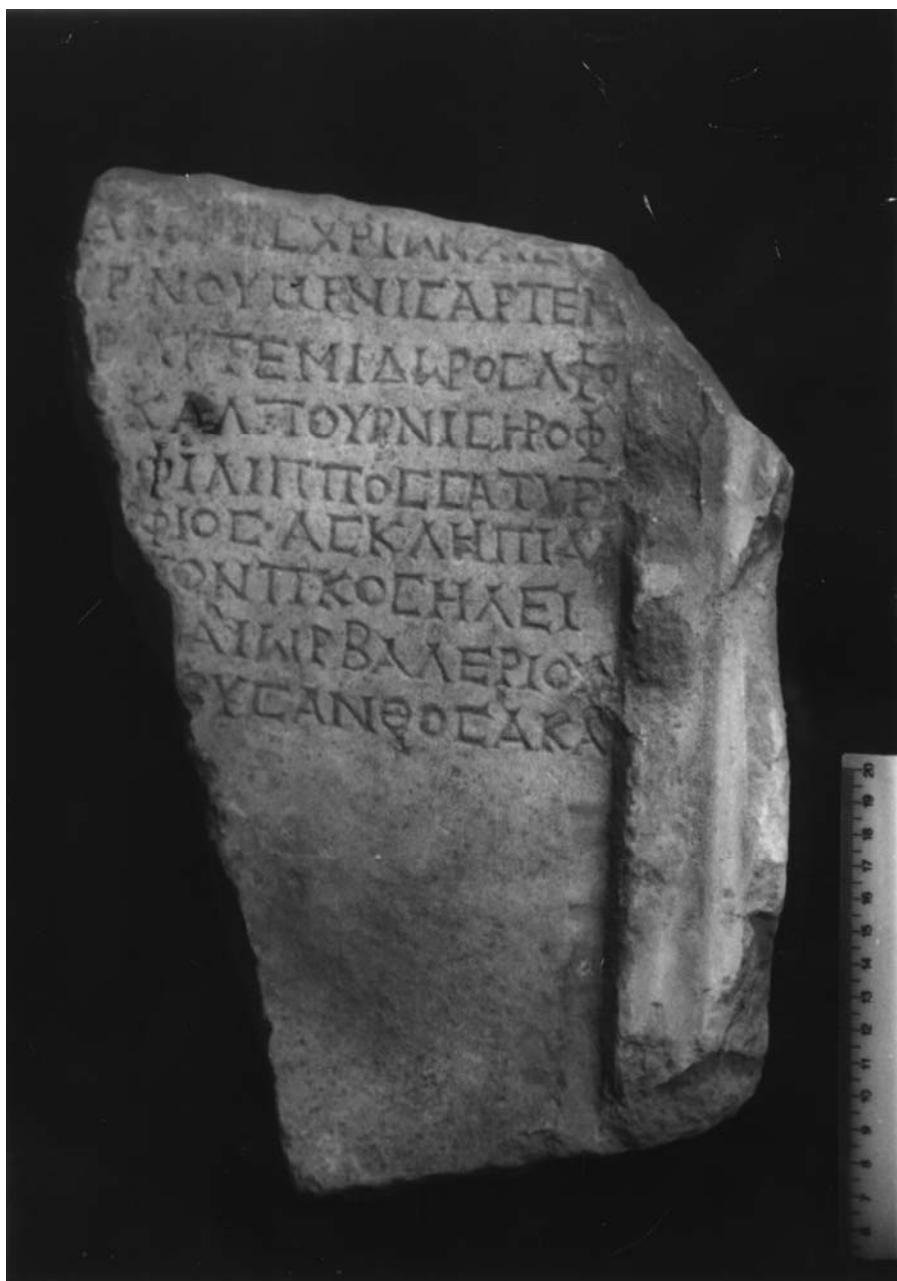 ΣΧΡΙΩΝ
ΡΝΟΥΩΡΝΙΣΑΡΤΕΜ
ΤΕΜΙΔΩΡΟΣΑΦΟ
ΚΑΛΠΟΥΡΝΙΣΗΡΟΦ
ΦΙΛΙΠΠΟΣΣΑΤΥΡ
ΦΙΟΣ·ΑΣΚΛΗΠΙΑΔ
ΟΝΤΙΚΟΣΗΛΕΙ
ΑΙΩΡΒΑΛΕΡΙΟΥ
ΥΣΑΝΘΟΣΑΚΑ